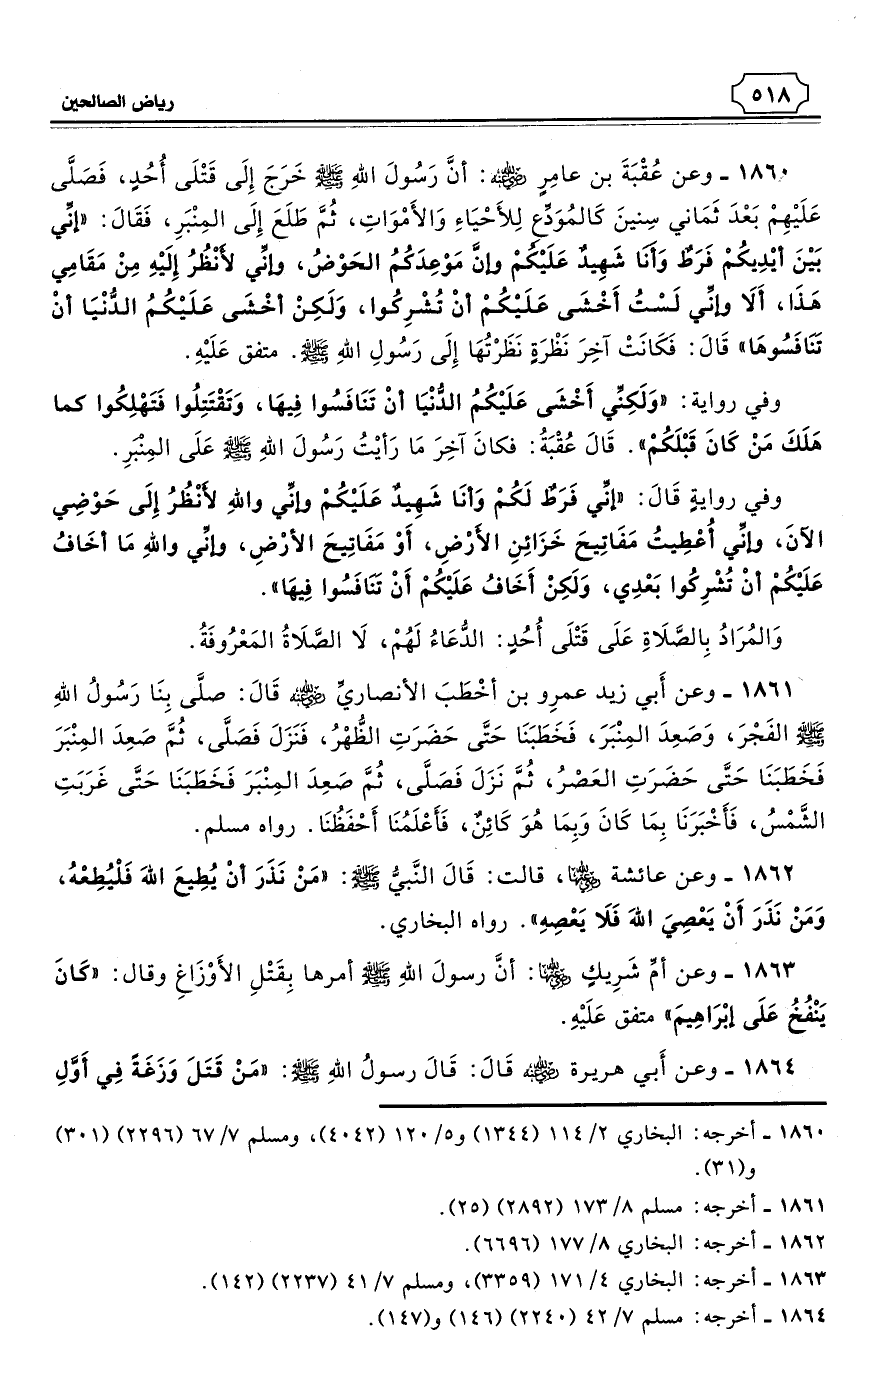 ٥١٨
رياض الصالحين
١٨٦٠ ـ وعن عُقْبَةَ بن عامِرٍ رضي الله عنه: أنَّ رَسُولَ اللهِ ﷺ خَرَجَ إِلَى قَتْلَى أُحُدٍ، فَصَلَّى
عَلَيْهِمْ بَعْدَ ثَمَاني سِنينَ كَالمُوَدِّعِ لِلأَحْيَاءِ وَالأَمْوَاتِ، ثُمَّ طَلَعَ إِلَى المِنْبَرِ، فَقَالَ: «إنِّي
بَيْنَ أيْدِيكُمْ فَرَطٌ وَأَنَا شَهِيدٌ عَلَيْكُمْ وإنَّ مَوْعِدَكُمُ الحَوْضُ، وإنِّي لأَنْظُرُ إِلَيْهِ مِنْ مَقَامِي
هَذَا، أَلَا وإنِّي لَسْتُ أَخْشَى عَلَيْكُمْ أنْ تُشْرِكُوا، وَلَكِنْ أخْشَى عَلَيْكُمُ الدُّنْيَا أنْ
تَنَافَسُوهَا» قَالَ: فَكَانَتْ آخِرَ نَظْرَةٍ نَظَرْتُهَا إِلَى رَسُولِ اللهِ ﷺ. متفق عَلَيْهِ.
وفي رواية: «وَلَكِنِّي أَخْشَى عَلَيْكُمُ الدُّنْيَا أنْ تَنَافَسُوا فِيهَا، وَتَقْتَتِلُوا فَتَهْلِكُوا كما
هَلَكَ مَنْ كَانَ قَبْلَكُمْ». قَالَ عُقْبَةُ: فكانَ آخِرَ مَا رَأيْتُ رَسُولَ اللهِ ﷺ عَلَى المِنْبَرِ.
وفي روايةٍ قَالَ: «إنِّي فَرَطٌ لَكُمْ وَأنَا شَهِيدٌ عَلَيْكُمْ وإنِّي واللهِ لأَنْظُرُ إِلَى حَوْضِي
الآنَ، وإنِّي أُعْطِيتُ مَفَاتِيحَ خَزَائِنِ الأَرْضِ، أَوْ مَفَاتِيحَ الأرْضِ، وإنِّي واللهِ مَا أخَافُ
عَلَيْكُمْ أنْ تُشْرِكُوا بَعْدِي، وَلَكِنْ أَخَافُ عَلَيْكُمْ أَنْ تَنَافَسُوا فِيهَا».
وَالمُرَادُ بِالصَّلَاةِ عَلَى قَتْلَى أُحُدٍ: الدُّعَاءُ لَهُمْ، لَا الصَّلَاةُ المَعْرُوفَةُ.
١٨٦١ ـ وعن أَبي زيد عمرِو بن أخْطَبَ الأنصاريِّ رضي الله عنه قَالَ: صلَّى بِنَا رَسُولُ اللهِ
ﷺ الفَجْرَ، وَصَعِدَ المِنْبَرَ، فَخَطَبَنَا حَتَّى حَضَرَتِ الظُّهْرُ، فَنَزَلَ فَصَلَّى، ثُمَّ صَعِدَ المِنْبَرَ
فَخَطَبَنَا حَتَّى حَضَرَتِ العَصْرُ، ثُمَّ نَزَلَ فَصَلَّى، ثُمَّ صَعِدَ المِنْبَرَ فَخَطَبَنَا حَتَّى غَرَبَتِ
الشَّمْسُ، فَأَخْبَرَنَا بِمَا كَانَ وَبِمَا هُوَ كَائِنٌ، فَأَعْلَمُنَا أَحْفَظُنَا. رواه مسلم.
١٨٦٢ ـ وعن عائشة رضي الله عنها، قالت: قَالَ النَّبيُّ ﷺ: «مَنْ نَذَرَ أنْ يُطِيعَ اللهَ فَلْيُطِعْهُ،
وَمَنْ نَذَرَ أَنْ يَعْصِيَ اللهَ فَلَا يَعْصِهِ». رواه البخاري.
١٨٦٣ ـ وعن أمِّ شَرِيكٍ رضي الله عنها: أنَّ رسولَ اللهِ ﷺ أمرها بِقَتْلِ الأَوْزَاغِ وقال: «كَانَ
يَنْفُخُ عَلَى إبْرَاهِيمَ» متفق عَلَيْهِ.
١٨٦٤ ـ وعن أَبي هريرة رضي الله عنه قَالَ: قَالَ رسولُ اللهِ ﷺ: «مَنْ قَتَلَ وَزَغَةً فِي أَوَّلِ
١٨٦٠ ـ أخرجه: البخاري ٢/ ١١٤ (١٣٤٤) و٥/ ١٢٠ (٤٠٤٢)، ومسلم ٧/ ٦٧ (٢٢٩٦) (٣٠١)
و(٣١).
١٨٦١ ـ أخرجه: مسلم ٨/ ١٧٣ (٢٨٩٢) (٢٥).
١٨٦٢ ـ أخرجه: البخاري ٨/ ١٧٧ (٦٦٩٦).
١٨٦٣ ـ أخرجه: البخاري ٤/ ١٧١ (٣٣٥٩)، ومسلم ٧/ ٤١ (٢٢٣٧) (١٤٢).
١٨٦٤ ـ أخرجه: مسلم ٧/ ٤٢ (٢٢٤٠) (١٤٦) و(١٤٧).